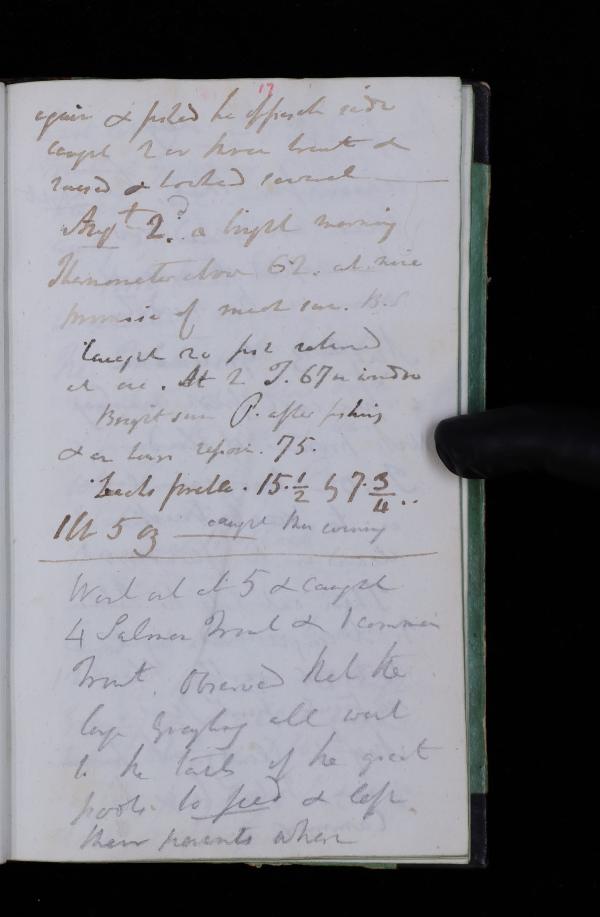 17
again & fished the opposite side
caught 2 or three trout &
raised & hooked several
Augt 2.d a bright morning
Thermometer above 62. at nine
promise of much sun. B.S
Caught 20 fish returned
at one. At 2 T. 67 in window
Bright sun P. after fishing
& an hours repose. 75.
15.1/2 by 7.3/4..
1 lb 5 oz caught this evening
Went out at 5 & caught
4 Salmon Trout & 1 common
Trout. Observed that the
large Grayling all went
to the tails of the great
pools to feed & left
their where